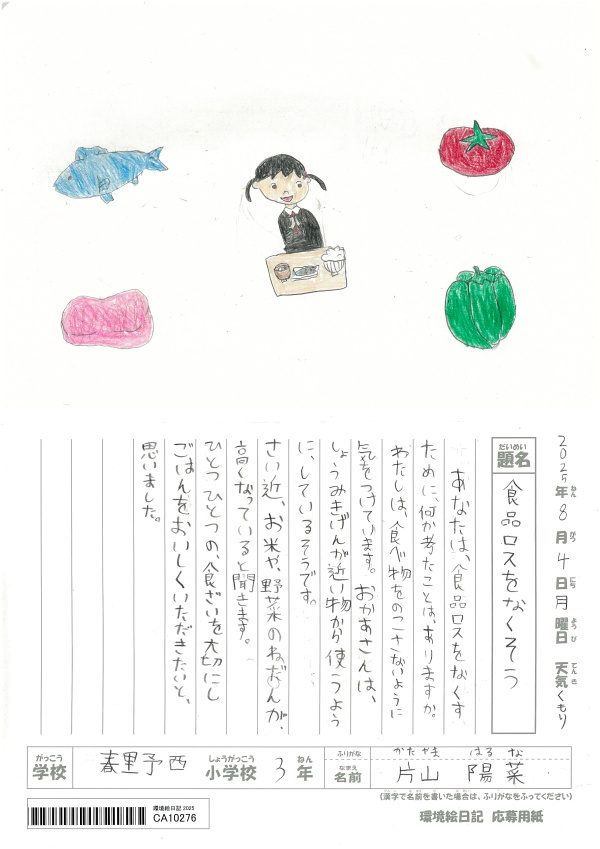 2025年ねん8月がつ4日にち月曜日ようび 天気てんきくもり
題名だいめい 食品ロスをなくそう
あなたは、食品ロスをなくす
ために、何か考たことは、ありますか。
わたしは、食べ物をのこさないように
気をつけています。おかあさんは、
しょうみきげんが近い物から使うよう
に、しているそうです。
さい近、お米や、野菜のねだんが、
高くなっていると聞きます。
ひとつひとつの、食ざいを大切にし
ごはんをおいしくいただきたいと、
思いました。
がっこう 学校 春里予西 しょうがっこう 小学校 3 ねん 年
ふりがな かたやま はるな
なまえ 名前 片山 陽菜
(漢字で名前を書いた場合は、ふりがなをふってください)
環境絵日記 2025
CA10276
環境絵日記 応募用紙